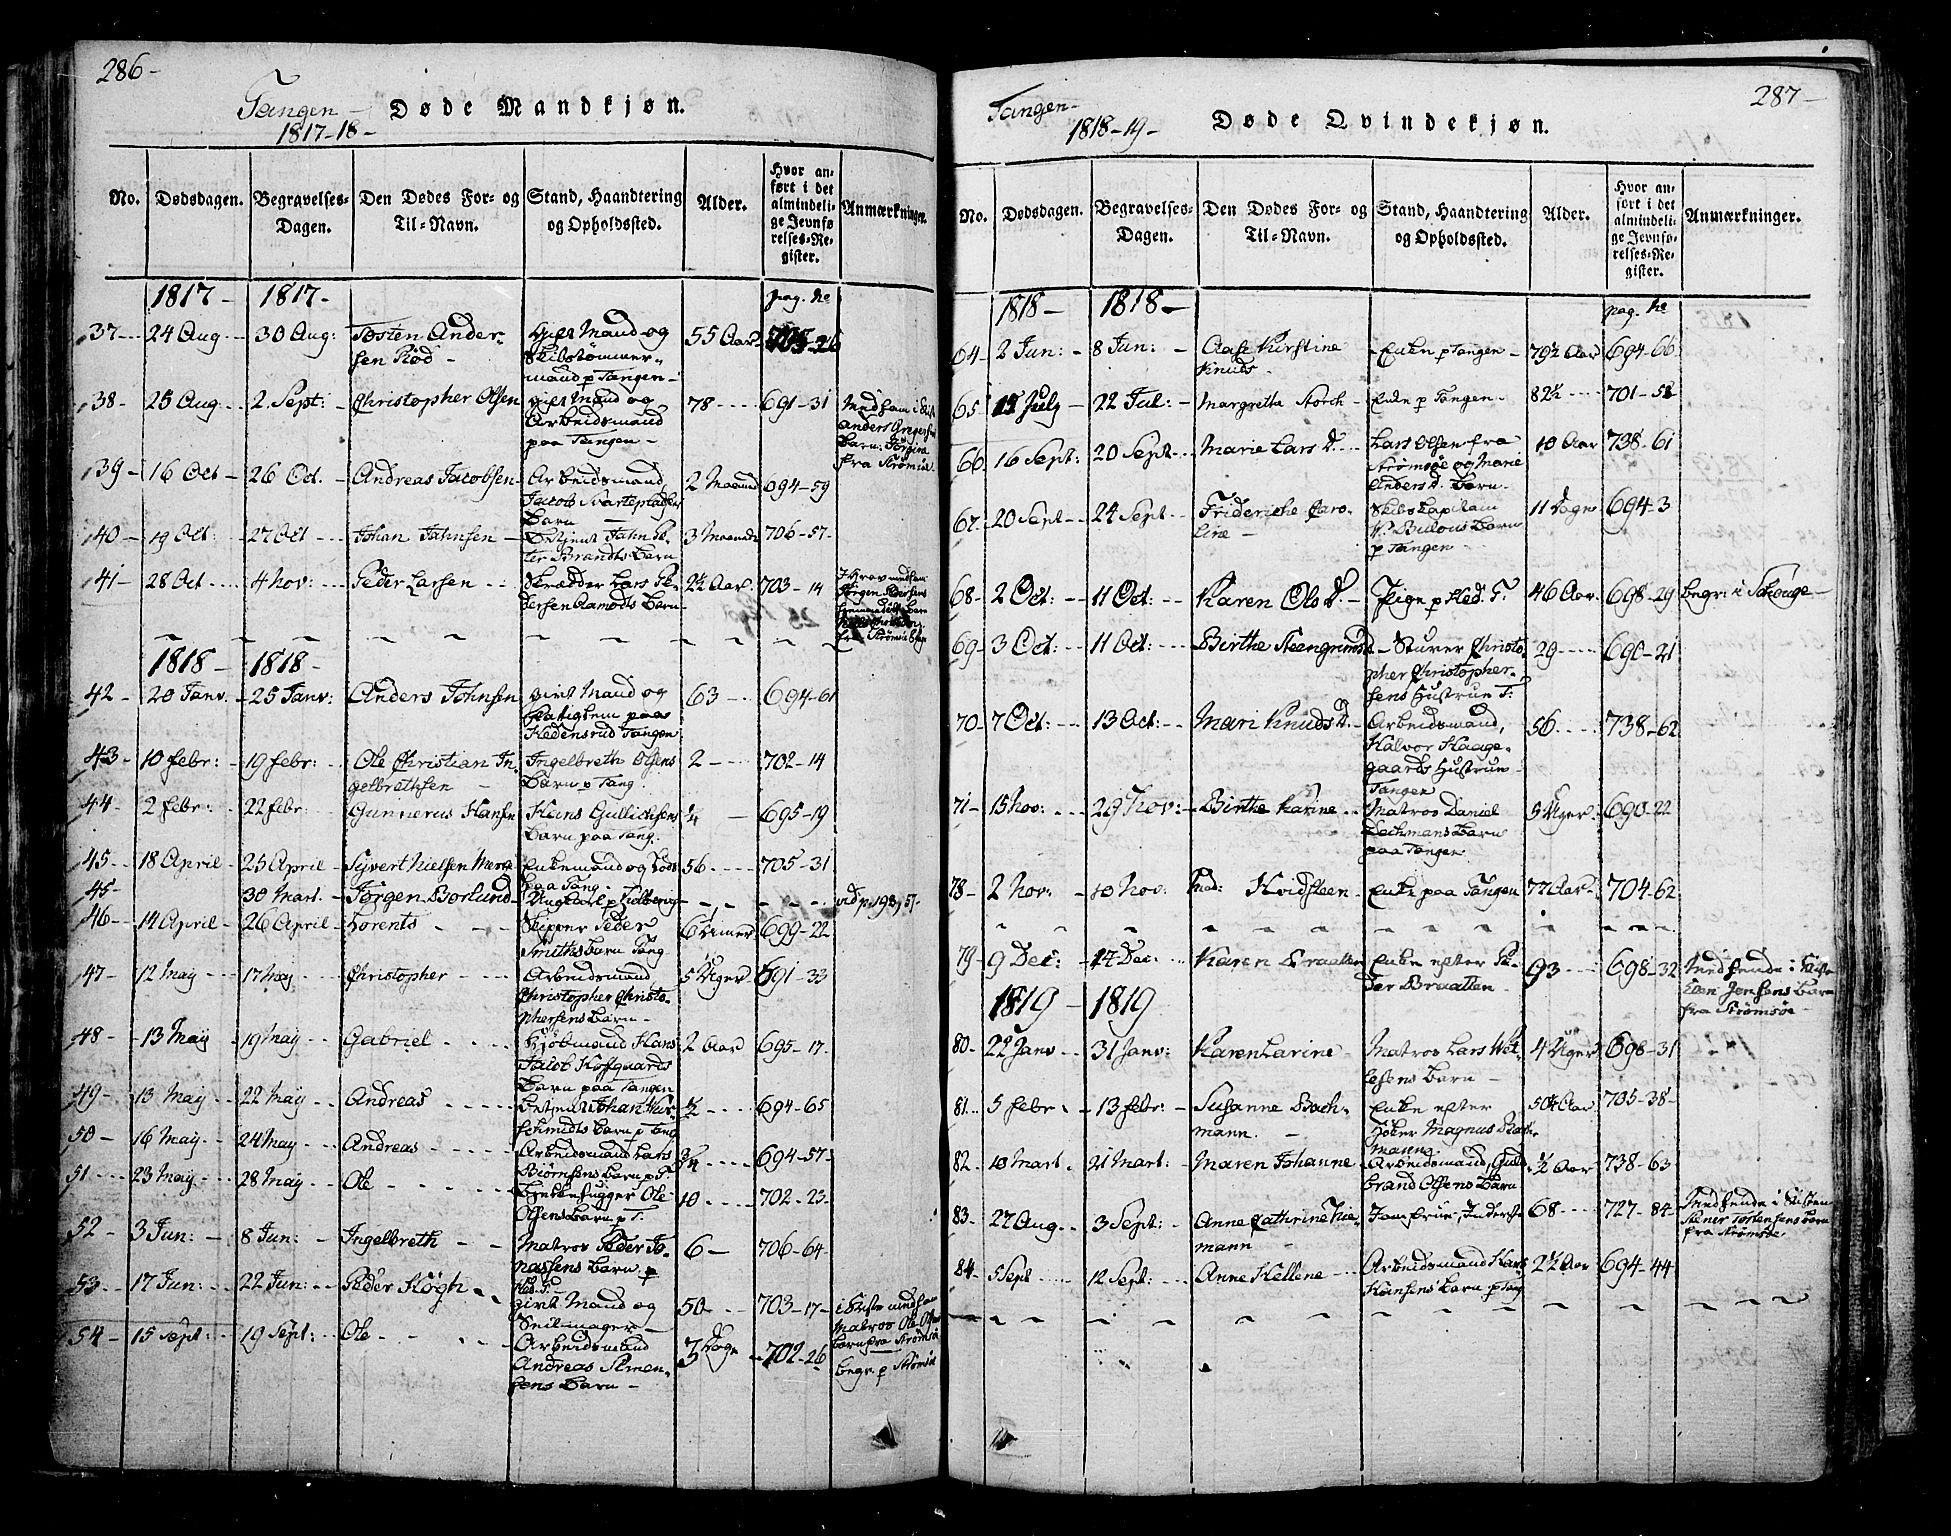 286-
Tangen - Døde Mandkjøn.
1817-18-
No. Dødsdagen. Begravelses-Dagen. Den Dødes For- og Til-Navn. Stand, Haandtering og Opholdssted. Alder. Hvor anført i det almindelige Jevnførelses-Register. Anmærkninger.
1817 - 1817- pag. No
37 - 24 Aug - 30 Aug: Tosten Ander- gift Mand og 55 Aar 705-26
sen Rød - Skibstømmer-
mand p Tangen -
38 - 25 Aug - 2 Sept: - Christopher Olsen gift Mand og 78 - 691-31
Arbeidsmand
paa Tangen -
fra Strømsøe
39 - 16 Oct - 26 Oct. - Andreas Jacobsen - Arbeidsmand 2 Maaned 694-59
Jacob Svarteplads
Barn -
40 - 19 Oct: - 27 Oct - Johan Jahnsen - Betjent Jahn Pe- 3 Maaned 706-57-
ter Brandts Barn
41 - 28 Oct - 4 Nov: - Peder Larsen - Skrædder Lars Pe- 2½ Aar. 703-14
dersen Aamodts Barn -
1818 - 1818 -
42 - 20 Janv: - 25 Janv: Anders Johnsen gift Mand og 63 - 694-61
paa
Hedensrud Tangen
43 - 10 Febr: - 19 Febr: Ole Christian In- Ingelbreth Olsens 2 - 702-14
gelbrethsen - Barn p Tang.
44 - 2 Febr: - 22 Febr - Gunnerus Hansen Hans Gullichsens ¼ - 695-19
Barn paa Tang.
45 - 18 April - 25 April - Syvert Nielsen Enkemand og Lods 56 - 705-31
paa Tang. -
45 - 30 Mart. - Jørgen Borlund - Ungkarl p - vid p. 198, 57-
46 - 14 April - 26 April - Lorents - Skipper Peder 6 Timer 699-22
Smiths Barn Tang
47 - 12 May - 17 May - Christopher - Arbeidsmand 5 Uger 691-33
Christopher Christo-
phersens Barn -
48 - 13 May - 19 May - Gabriel - Kjøbmand Hans 2 Aar 695-17-
Jacob Hofgaards
Barn paa Tangen
49 - 13 May - 22 May - Andreas - Betjent Johan ½ - 694-65
Schmidts Barn p Tang
50 - 16 May - 24 May - Andreas - Arbeidsmand Lars ¾ - 694-57-
Biørnsens Barn p T.
51 - 23 May - 28 May - Ole - Ole 10 - 702-23-
Olsens Barn p T.
52 - 3 Jun: - 8 Jun: - Ingelbreth - Matros Peder Jo- 6 - 706-64-
nassens Barn p
53 - 17 Jun: - 22 Jun: - Peder Høgh - gift Mand og 50 - 703-17- i Kiste med ham
Seilmager - Matros Ole Olsens
Barn fra Strømsøe
54 - 15 Sept: - 19 Sept: - Ole - Arbeidsmand 3 Dage - 702-26 begr. p Strømsøe
Andreas Simen-
sens Barn -
287-
Tangen - Døde Qvindekjøn.
1818-19-
No. Dødsdagen. Begravelses-Dagen. Den Dødes For- og Til-Navn. Stand, Haandtering og Opholdssted. Alder. Hvor anført i det almindelige Jevnførelses-Register. Anmærkninger.
1818 - 1818 - pag. No
64 - 2 Jun: - 8 Jun: - Aase Kirstine - Enke p Tangen - 79½ Aar 694-66
Knuds -
65 - July - 22 Jul: - Margretha Storch - Enke p Tangen - 82½ - 701-58
66 - 16 Sept: 20 Sept - Marie Lars D. - Lars Olsen fra 10 Aar 738-61
Strømsøe og Marie
Anders D. Barn -
67 - 20 Sept - 24 Sept - Friderche Caro- Skibskapitain 11 Dage 694-3
line - Bulows Barn
p Tangen -
68 - 2 Oct: - 11 Oct: - Karen Ols D. - Pige p Hed. T. 46 Aar. 698-29 begr. i Skouge -
69 - 3 Oct: - 11 Oct: - Birthe Steengrims D - Sturer Christo- 29 - 690-21
pher Christopher-
sens Hustrue T.
70 - 7 Oct: - 13 Oct: - Mari Knuds D. - Arbeidsmand, 56 - 738-62
Halvor Haage-
gaards Hustrue -
Tangen
71 - 15 Nov: - 29 Nov: - Birthe Karine - Matros Daniel 9 Uger 690-22
Bachmans Barn
paa Tangen
78 - 2 Nov: - 10 Nov: Mad: Hvidsteen - Enke paa Tangen 77 Aar - 704-62
79 - 9 Dec: - 14 Dec: - Karen Braatten Enke efter Pe- 93 - 698-32 Nedsendt i Kiste
der Braatten - Even Jensens Barn
fra Strømsøe -
1819 - 1819
80 - 22 Janv - 31 Janv: Karen Larine - Matros Lars 4 Uger 698-31
Barn -
81 - 5 Febr: - 13 Febr: - Susanne Bach- Enke efter 50½ Aar 705-38-
mann. - Høker Magnus Bach-
mann
82 - 10 Mart. - 21 Mart: - Maren Johanne - Arbeidsmand, Guld- ½ Aar 738-63
brand Olsens Barn
83 - 27 Aug - 3 Sept: - Anne Cathrine Nie- Jomfrue, 68 - 727-84 Nedsendt i Kisten
mann - Stener Tostensens Barn
fra Strømsøe
84 - 5 Sept - 12 Sept: - Anne Hellene - Arbeidsmand Hans 2½ Aar 694-44
Hansens Barn p Tang